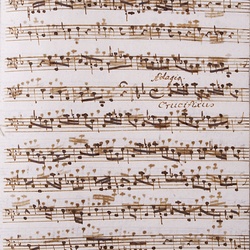 Adagio
Crucifixus